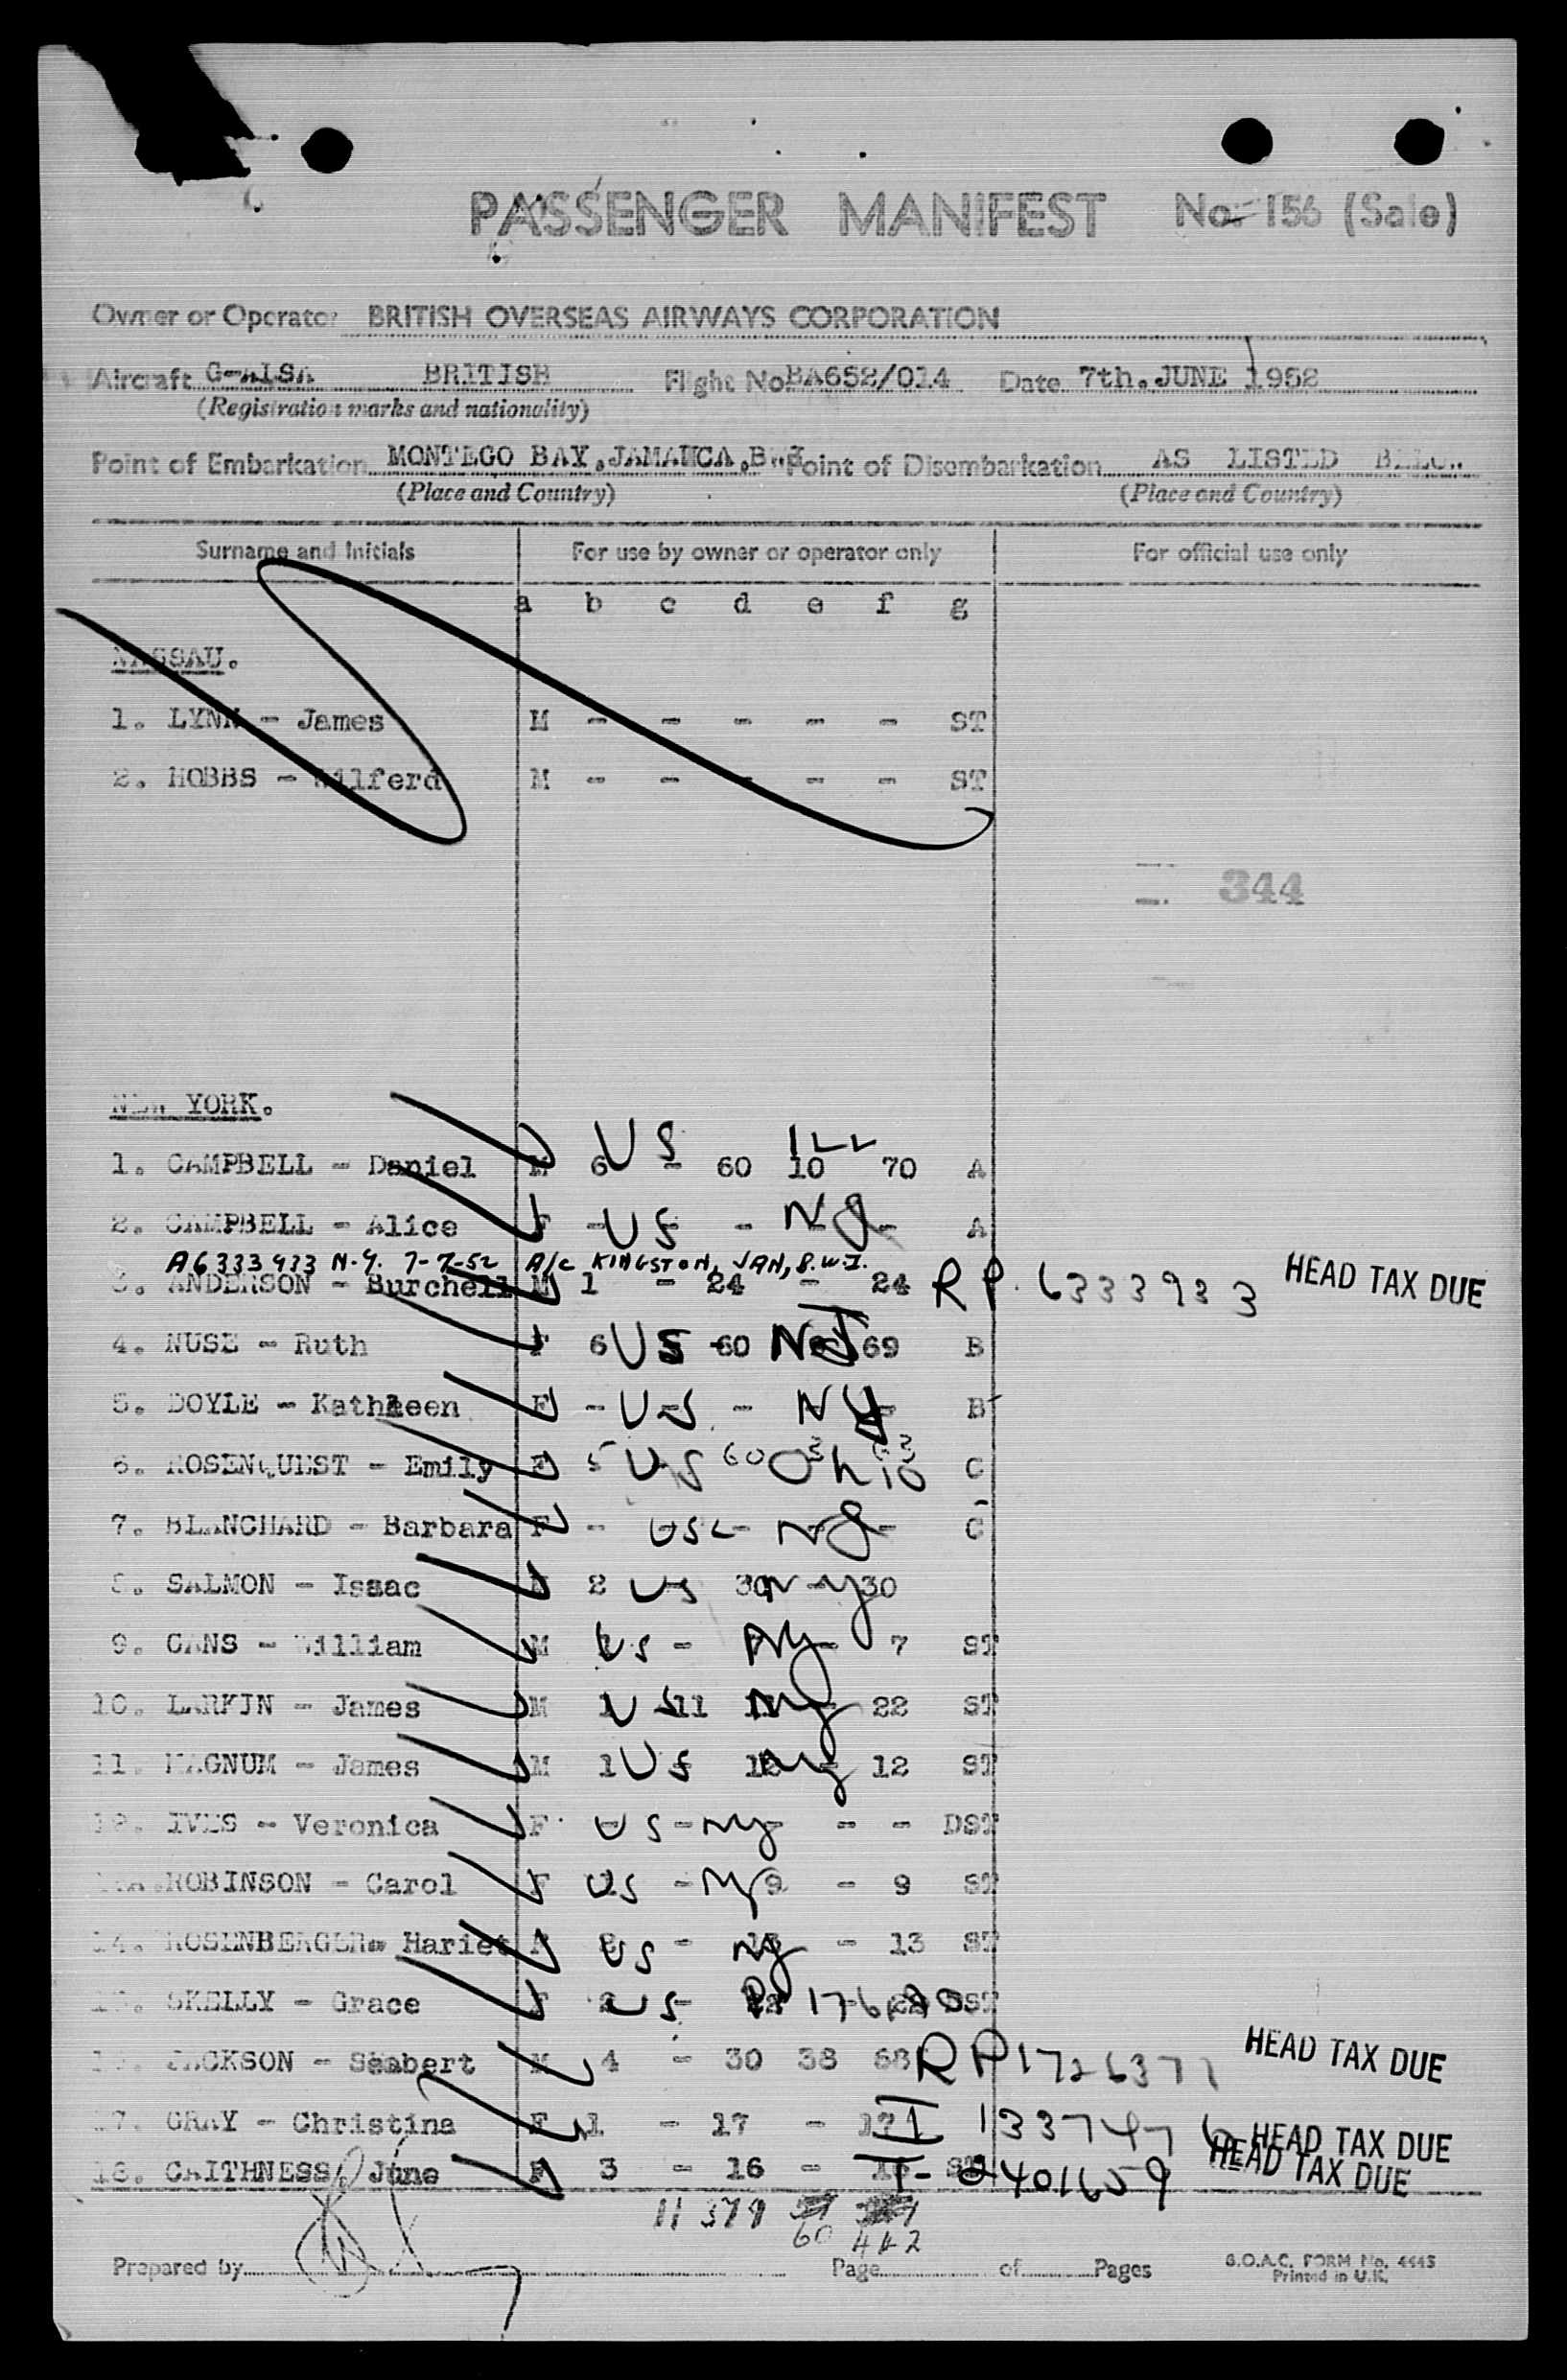 PASSENGER MANIFEST No. 156 (Sale)
Owner or Operator BRITISH OVERSEAS AIRWAYS CORPORATION
Aircraft G-ALSA BRITISH Flight No BA652/014 Date 7th.JUNE 1952
(Registration marks and nationality)
Point of Embarkation MONTEGO BAY,JAMAICA,BWI Point of Disembarkation AS LISTED BELOW
(Place and Country) (Place and Country)
Surname and Initials For use by owner or operator only For official use only
a b c d e f g
NASSAU.
1. LYNN - James M - - - - - ST
2. HOBBS - Wilferd M - - - - - ST
344
NEW YORK.
US ILL
1. CAMPBELL - Daniel M 6 - 60 10 70 A
2. CAMPBELL - Alice F - US - NY - A
A6333933 N.Y. 7-7-52 A/c KINGSTON, JAM, B.W.I.
3. ANDERSON - Burchell M 1 - 24 - 24 RP. 6333933 HEAD TAX DUE
4. NUSE - Ruth F 6 US 60 NJ 69 B
5. DOYLE - Kathleen F - US - NY - B
6. ROSENQUEST - Emily F 5 US 60 3 Ohio 63 C
7. BLANCHARD - Barbara F - US - NY - C
8. SALMON - Isaac M 2 US 30 NY 30
9. GANS - William M US - NY - 7 ST
10. LARKIN - James M 1 US 11 11 NY - 22 ST
11. MAGNUM - James M 1 US 12 NY - 12 ST
12. IVES - Veronica F US - NY - - DST
13. ROBINSON - Carol F US - NY 9 - 9 ST
14. ROSENBERGER - Hariet F 2 US - 13 NY - 13 ST
15. SKELLY - Grace F 2 US - 22 DST
16. JACKSON - Seabert M 4 - 30 38 68 RP 1726371 HEAD TAX DUE
17. GRAY - Christina F 1 - 17 - 17 I 1337476 HEAD TAX DUE
18. CAITHNESS June F 3 - 16 - 16 ST I- 2401659 HEAD TAX DUE
11 379
60 442
Prepared by Page of Pages B.O.A.C. FORM No. 4445
Printed in U.K.